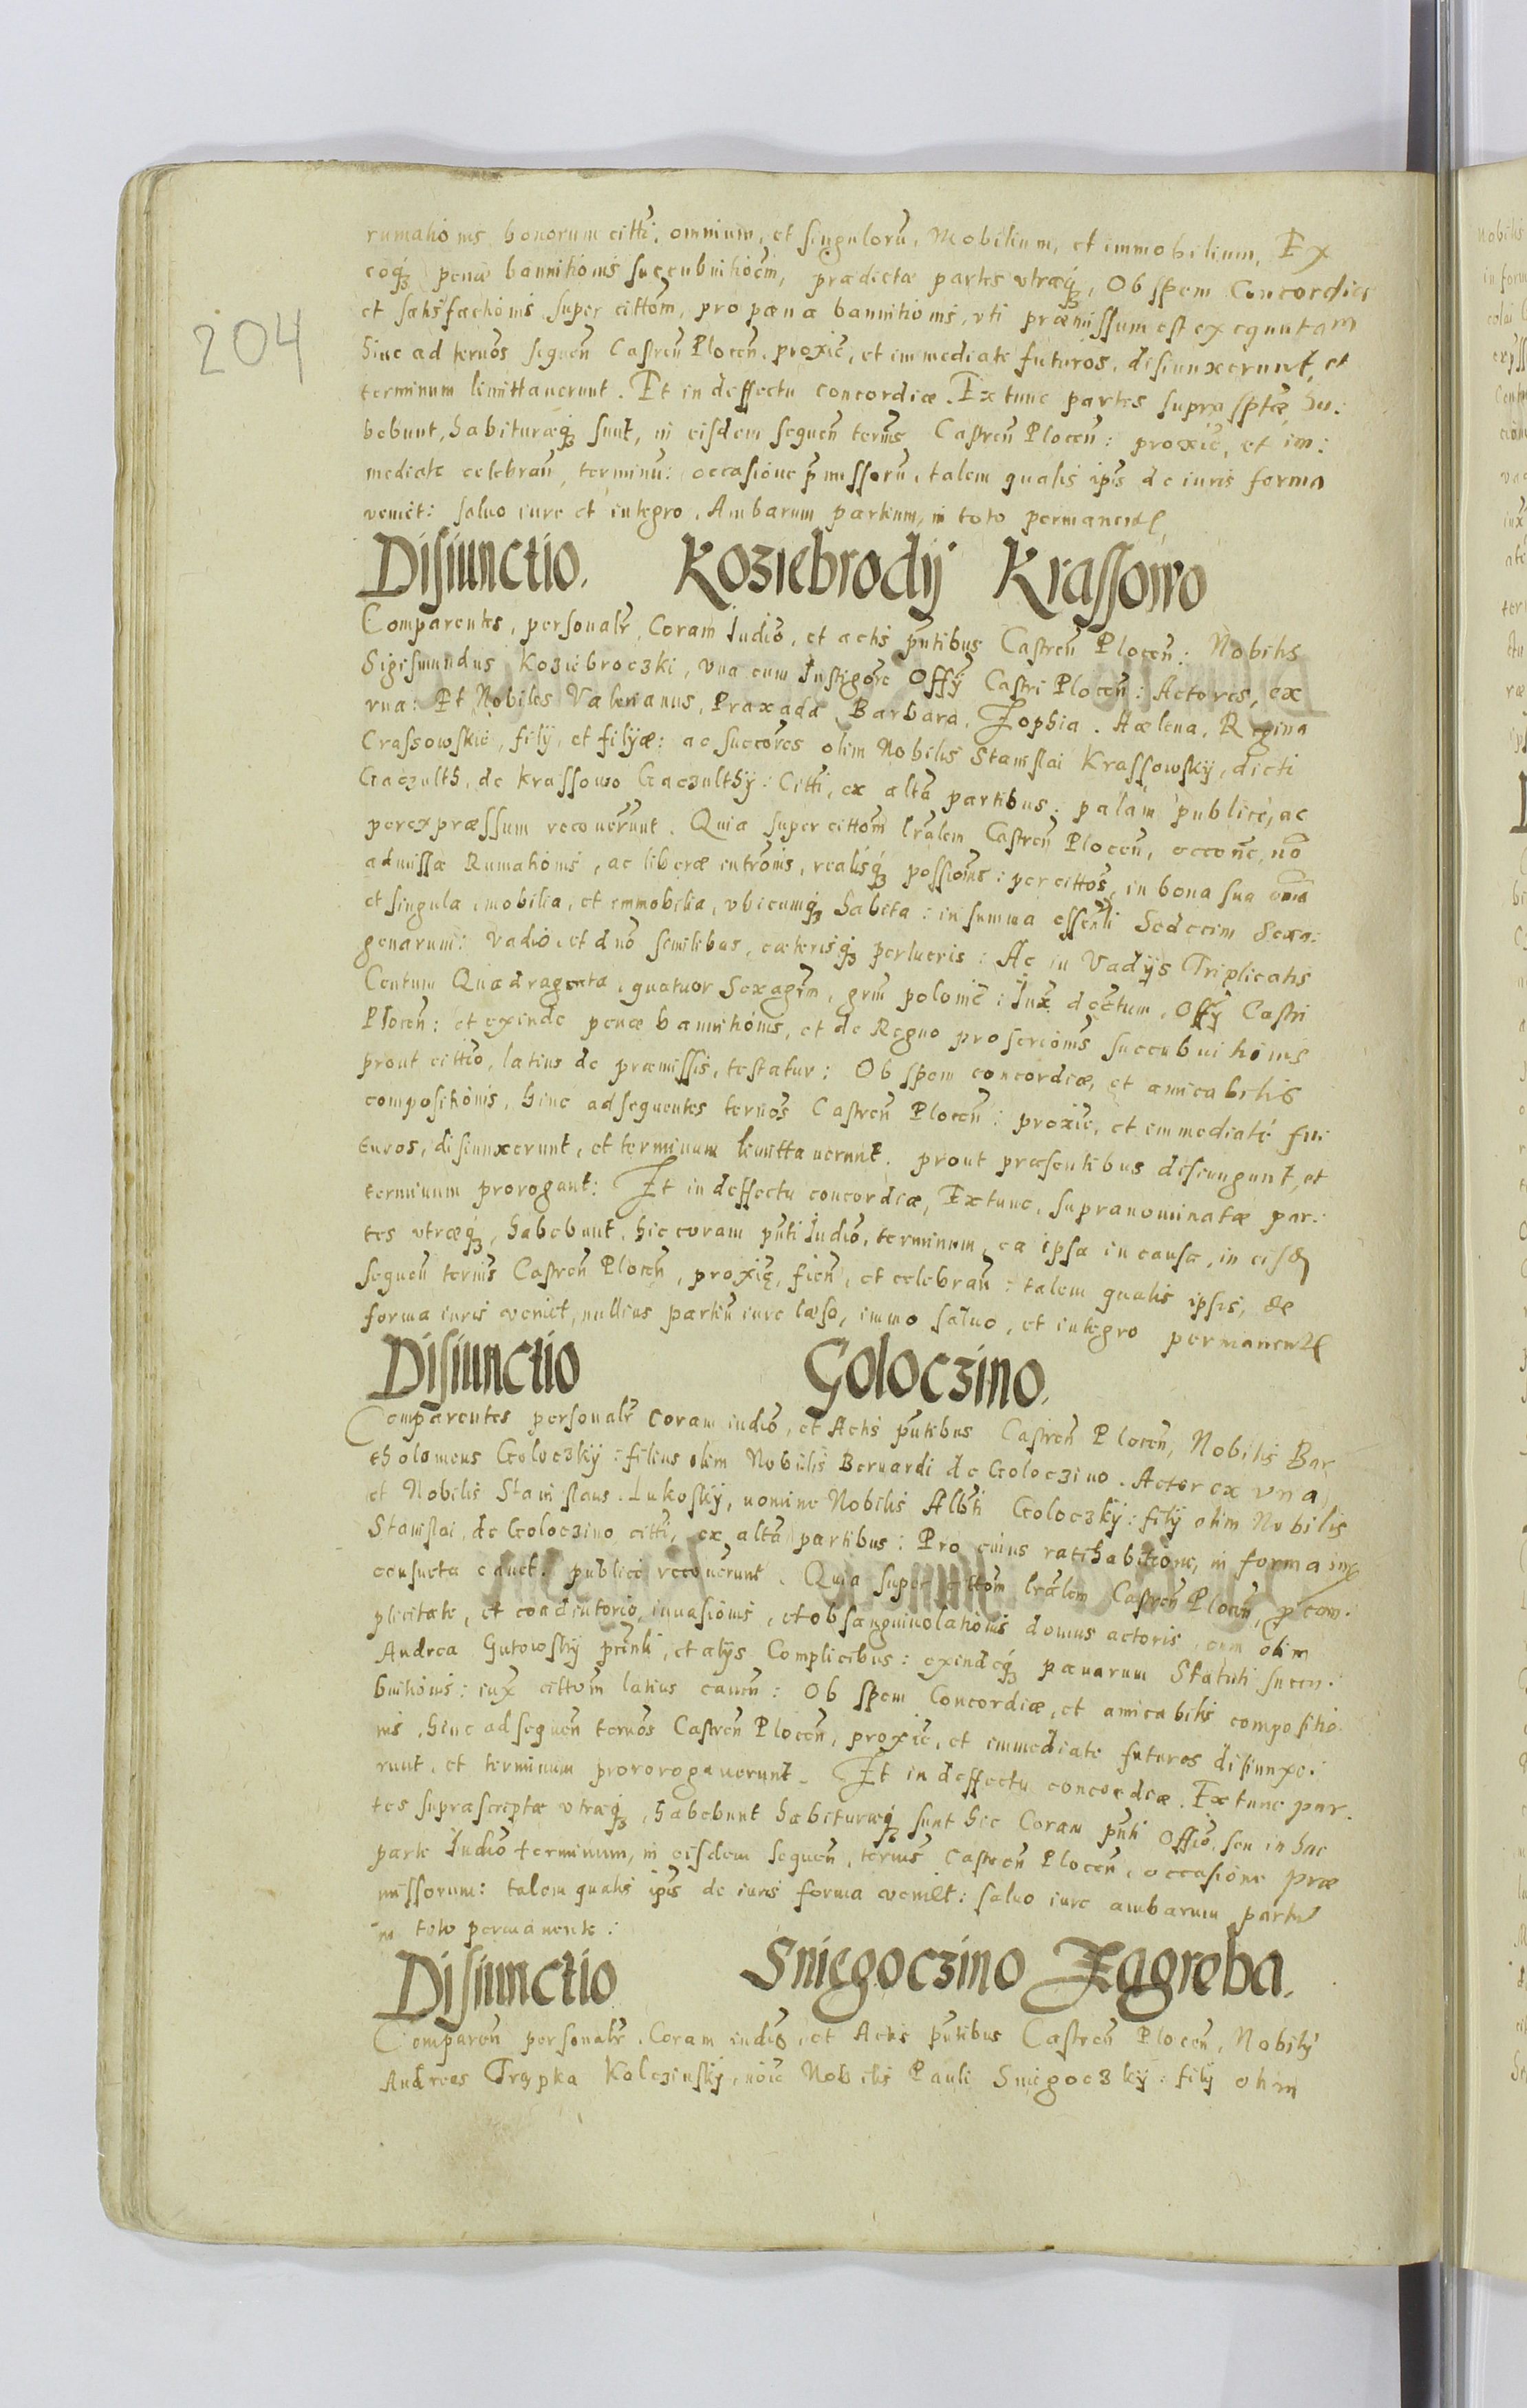 rumationis bonorum citti, omnium, et singulorū, Mobilium, et immobilium, Ex
eoq3 penæ bannitionis succubuitioem̄, prædictæ partes vtræq3, Ob spem Concordiæ
204
et satisfactionis super cittom̄, pro pæna bannitionis, vti præmissum est exequutam
hinc ad termōs sequen̄ Castren̄ Plocen̄. proxiē, et immediate futuros, disiunxerunt, et
terminum limittauerunt. Et in deffectu concordiæ. Extunc partes supra sptæ, ha:
bebunt, habituræq3 sunt, in eisdem sequen̄ termīs Castren̄ Plocen̄: proxiē, et im:
mediate celebran̄, terminū: occasione p̄missorū, talem qualis ip̄is de iuris forma
veniet: saluo iure et integro, Ambarum partium, in toto permanente
Disiunctio. Koziebrodÿ Krassowo
Comparentes, personalr̄, Coram Iudiō, et actis pn̄tibus Castren̄ Plocen̄: Nobilis
Sigismundus Koziebroczki, Vna cum Instigōre Offÿ Castri Plocen̄: Actores, ex
vna: Et Nobiles Valerianus, Praxada, Barbara, Zophia, Hælena, Regina
Crassowskie, filÿ, et filÿæ: ac succōres olim Nobilis Stanislai Krassowskÿ, dicti
Gaczulth, de Krassowo Gaczulthÿ: Citti, ex altā partibus: palam publice, ac
per expræssum recouerunt. Quia super cittom̄ lrālem Castren̄ Plocen̄, occōne, nō
admissæ Rumationis, ac liberæ intrōnis, realisq3 possiōnis: per cittōs, in bona sua oīa
et singula, mobilia, et immobilia, vbicumq3 habita: in summa essenli Sedecim Sexa:
genarum: Vadio, et dnō similibus, cæterisq3 perlucris: Ac in Vadÿs Triplicatis
Centum Quadraginta, quatuor Sexagīn, grm̄ polonic̄: Iux̄ dectum, Offÿ Castri
Plocen̄: et exinde penæ bannitionis, et de Regno proscriōnis succubuitionis
prout cittiō, latius de præmissis, testatur: Ob spem concordiæ, et amicabilis
compositionis, hinc ad sequentes termōs Castren̄ Plocen̄: proxiē, et immediate fu:
turos, disiunxerunt, et terminum limittauerunt. prout præsentibus disiungunt, et
terminum prorogant: Et in deffectu concordiæ, Extunc, supranominatæ par:
tes vtræq3, habebunt, hic coram pn̄ti Iudiō, terminum, ea ipsa in causa, in eisd
sequen̄ termīs Castren̄ Plocen̄, proxiē, fien̄, et celebran̄: talem qualis ipsis, de
forma iuris veniet, nullius partiū iure læso, immo saluo, et integro permanente
Disiunctio Goloczino.
Comparentes personalr̄ Coram iudiō, et Actis pn̄tibus Castren̄ Plocen̄, Nobilis Bar
tholomeus Goloczkÿ: filius olim Nobilis Bernardi de Goloczino. Actor ex vna
et Nobilis Stanislaus Lukoskÿ, nomine Nobilis Albti Goloczkÿ: filÿ olim Nobilis
Stanislai, de Goloczino citti, ex altā partibus: Pro cuius ratihabitione, in forma iux̄
consueta cauet. publice recouerunt. Quia super cittom̄ lrālem Castren̄ Plocen̄, p com:
plicitate, et coadiutorio, inuasionis, et obsanguinolationis domus actoris, cum olim
Andrea Gutowskÿ, et alÿs Complicibus: exindeq3 pænarum Statuti succu:
buitionis: iux̄ cittom̄ latius canen̄: Ob spem Concordiæ, et amicabilis compositio:
nis, hinc ad sequen̄ termōs Castren̄ Plocen̄, proxiē, et immediate futuros disiunxe:
runt, et terminum prororogauerunt. Et in deffectu concordiæ. Extunc par:
tes suprascriptæ vtræq3, habebunt habituræq3 sunt hic Coram pn̄ti Offiō, seu in hac
parte Iudiō terminum, in eisdem sequen̄, termīs Castren̄ Plocen̄, occasione præ
missorum: talem qualis ip̄is de iuris forma veniet: saluo iure ambarum partiū
in toto permanente:
Disiunctio Sniegoczino Zagroba.
Comparen̄ personalr̄, Coram iudiō, et Actis pn̄tibus Castren̄ Plocen̄, Nobilÿ
Andreas Trzpka Kolczinskÿ, noīe Nobilis Pauli Sniegoczkÿ: filÿ olim